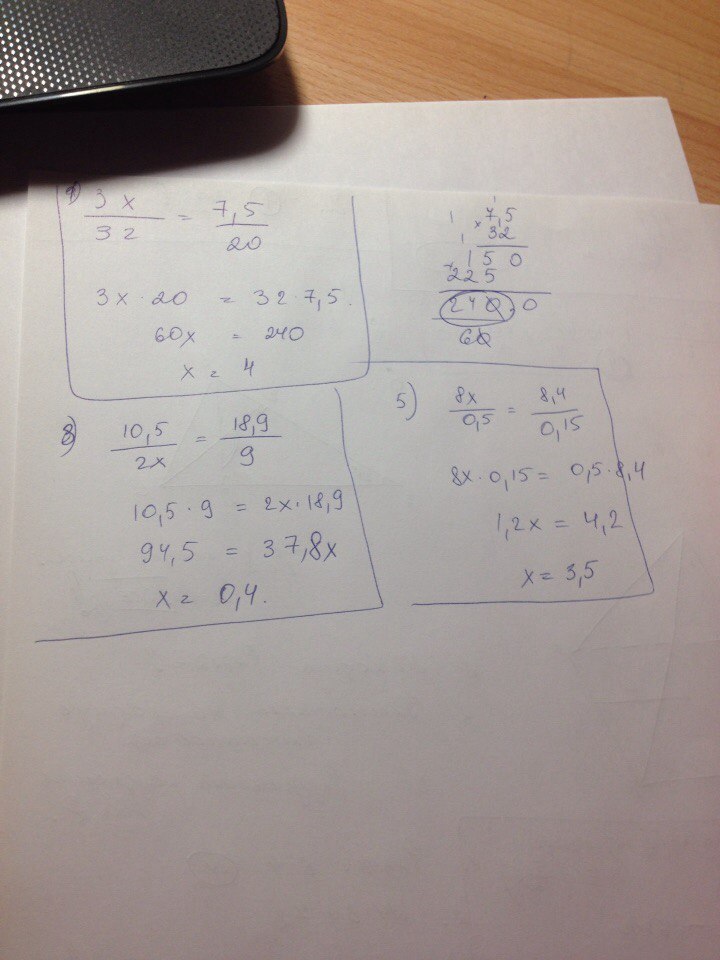 1) 3x / 32 = 7,5 / 20
3x · 20 = 32 · 7,5.
60x = 240
x = 4
1 1
× 7,5
1 32
1 5 0
+ 225
240,0
60
3) 10,5 / 2x = 18,9 / 9
10,5 · 9 = 2x · 18,9
94,5 = 37,8x
x = 0,4.
5) 8x / 0,5 = 8,4 / 0,15
8x · 0,15 = 0,5 · 8,4
1,2x = 4,2
x = 3,5